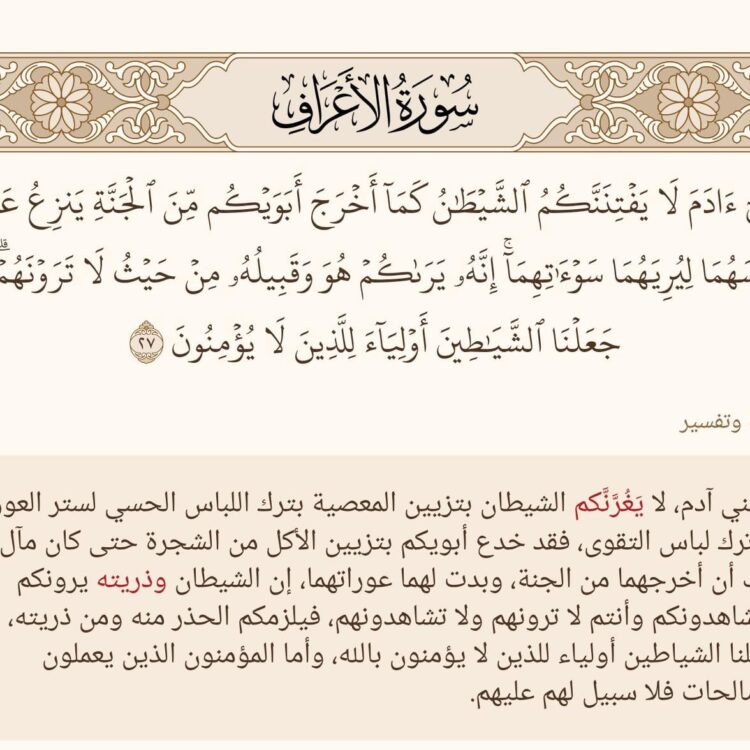 سُورَةُ الأَعْرَافِ
ءَادَمَ لَا يَفْتِنَنَّكُمُ ٱلشَّيْطَٰنُ كَمَآ أَخْرَجَ أَبَوَيْكُم مِّنَ ٱلْجَنَّةِ يَنزِعُ عَ
سَهُمَا لِيُرِيَهُمَا سَوْءَٰتِهِمَآۚ إِنَّهُۥ يَرَىٰكُمْ هُوَ وَقَبِيلُهُۥ مِنْ حَيْثُ لَا تَرَوْنَهُمْۗ
جَعَلْنَا ٱلشَّيَٰطِينَ أَوْلِيَآءَ لِلَّذِينَ لَا يُؤْمِنُونَ ٢٧
وتفسير
ني آدم، لا يَغُرَّنَّكم الشيطان بتزيين المعصية بترك اللباس الحسي لستر العور
ترك لباس التقوى، فقد خدع أبويكم بتزيين الأكل من الشجرة حتى كان مآل
أن أخرجهما من الجنة، وبدت لهما عوراتهما، إن الشيطان وذريته يرونكم
شاهدونكم وأنتم لا ترونهم ولا تشاهدونهم، فيلزمكم الحذر منه ومن ذريته،
لنا الشياطين أولياء للذين لا يؤمنون بالله، وأما المؤمنون الذين يعملون
الحات فلا سبيل لهم عليهم.